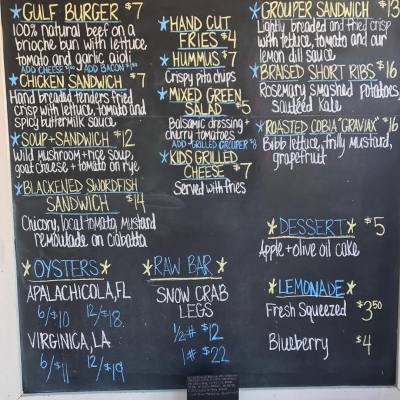 ★GULF BURGER $7
100% natural beef on a
brioche bun with lettuce
tomato and garlic aioli
★CHICKEN SANDWICH $7
Hand breaded tenders fried
crisp with lettuce, tomato and
spicy buttermilk sauce
★SOUP+SANDWICH $12
Wild mushroom+rice soup,
goat cheese+tomato on rye
★BLACKENED SWORDFISH
SANDWICH $14
Chicory, local tomato, mustard
remoulade on ciabatta
★HAND CUT
FRIES $4
★HUMMUS $7
Crispy pita chips
★MIXED GREEN
SALAD $5
Balsamic dressing+
churri tomatoes
ADD-GRILLED GROUPER
★KIDS GRILLED
CHEESE $7
Served with fries
★GROUPER SANDWICH $13
Lightly breaded and fried crisp
with lettuce, tomato and our
lemon dill sauce
★BRAISED SHORT RIBS $16
Rosemary smashed potatoes,
sautéed kale
★ROASTED COBIA "GRAVLAX" $16
Bibb lettuce, frilly mustard,
grapefruit
★DESSERT★ $5
Apple+olive oil cake
★OYSTERS★
APALACHICOLA, FL
6/$10 12/$18
VIRGINICA, LA
6/$11 12/$19
★RAW BAR★
SNOW CRAB
LEGS
1/2# $12
1# $22
★LEMONADE★
Fresh Squeezed $3.50
Blueberry $4